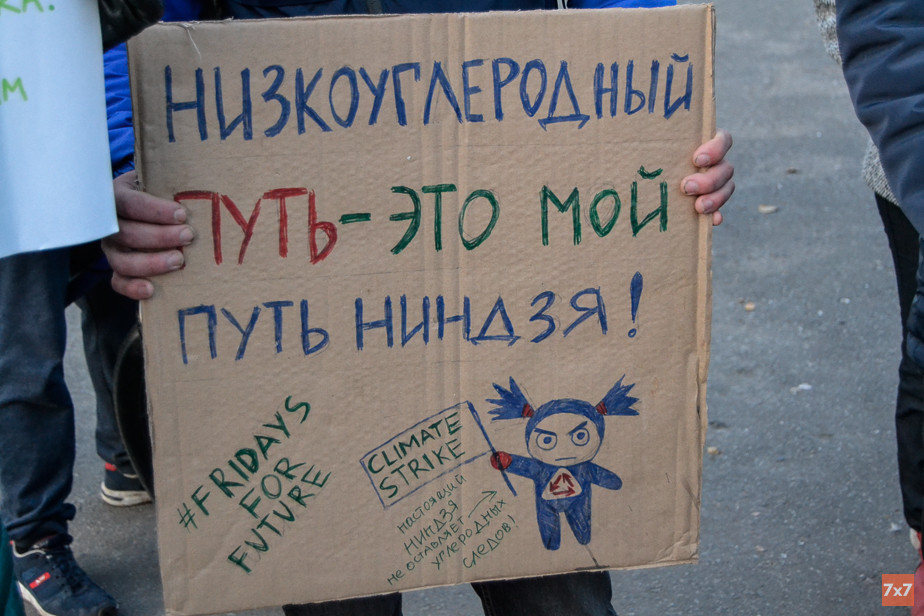 НИЗКОУГЛЕРОДНЫЙ
ПУТЬ-ЭТО МОЙ
ПУТЬ НИНДЗЯ!
#FRIDAYS
FOR
FUTURE
CLIMATE
STRIKE
настоящий
ниндзя
не оставляет
углеродных
следов!
7x7